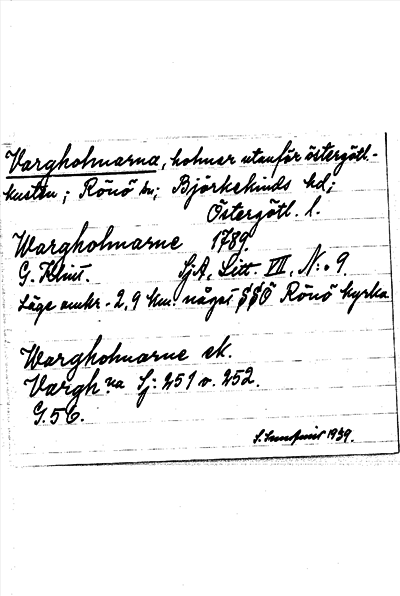 Vargholmarna, holmar utanför östergötl.-
kusten; Rönö sn; Björkekinds hd;
Östergötl. l.
Wargholmarne 1789.
G. Klint. SjA, Litt. VII, N:o 9
Läge omkr. 2,9 km. något SSÖ Rönö kyrka.
Wargholmarne ek.
Vargh:na Sj: 251 v. 252.
G. 56.
1939.